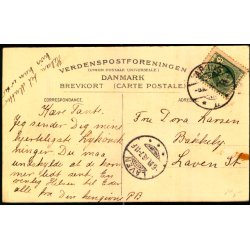 VERDENSPOSTFORENINGEN
(UNION POSTALE UNIVERSELLE)
DANMARK
BREVKORT (CARTE POSTALE)
CORRESPONDANCE.
Kære Tante.
Jeg sender Dig mine
hjerteligste Lykønsk
ninger Du maa
undskylde at de kom
mer lidt sent. En
venlig Hilsen til Eder
alle fra Din hengivne P.B.
Fru Dora Larsen
Bakkely
Laven St
LAVEN